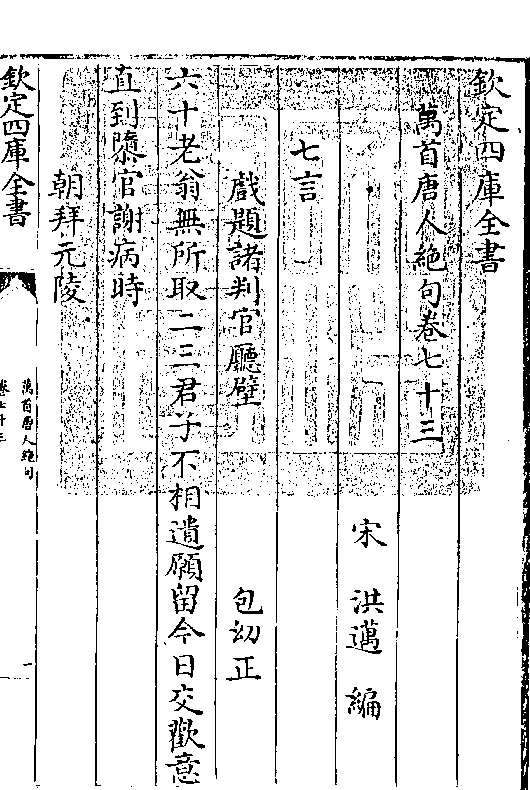 欽定四庫全書
萬首唐人絶句卷七十三
宋　洪邁　編
七言
戲題諸判官㕔壁　包幼正
六十老翁無所取二三君子不相遺願留今日交歡意
直到隳官謝病時
朝拜元陵
欽定四庫全書
萬首唐人絶句
卷七十三
一